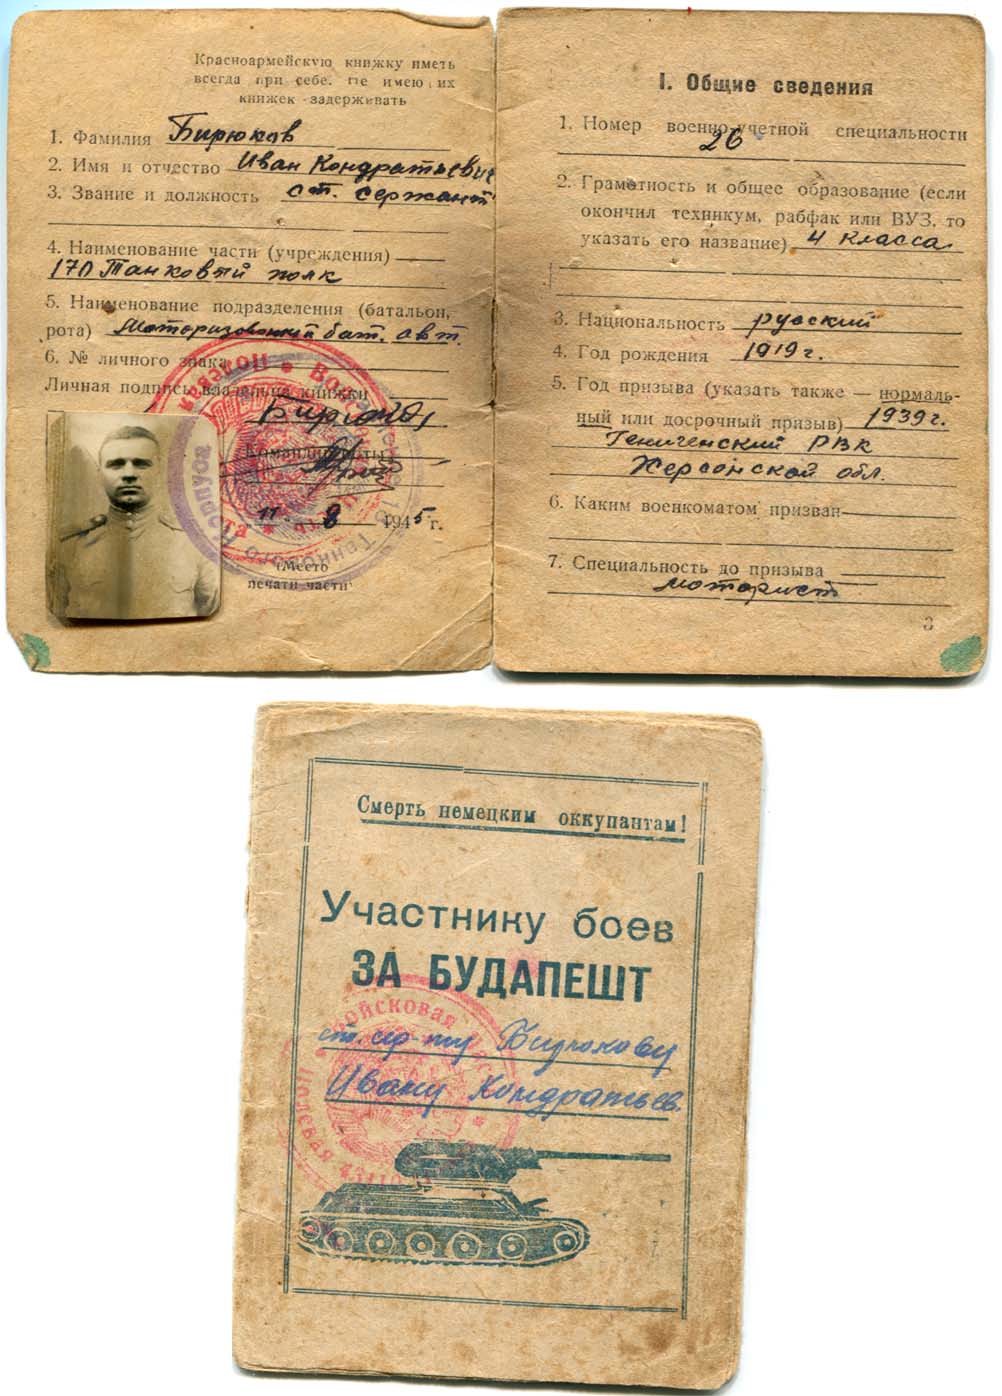 Красноармейскую книжку иметь
всегда при себе. Не имеющих
книжек - задерживать
1. Фамилия Бирюков
2. Имя и отчество Иван Кондратьевич
3. Звание и должность ст. сержант
4. Наименование части (учреждения)
170 Танковый полк
5. Наименование подразделения (батальон,
рота) Моторизованный бат. авт.
6. № личного знака
Личная подпись владельца книжки
Бирюков
Командир роты
11. 8 1945 г.
(Место
печати части)
I. Общие сведения
1. Номер военно-учетной специальности
26
2. Грамотность и общее образование (если
окончил техникум, рабфак или ВУЗ, то
указать его название) 4 класса
3. Национальность русский
4. Год рождения 1919 г.
5. Год призыва (указать также — нормаль-
ный или досрочный призыв) 1939 г.
Генический РВК
Херсонской обл.
6. Каким военкоматом призван
7. Специальность до призыва
моторист
3
Смерть немецким оккупантам!
Участнику боев
ЗА БУДАПЕШТ
ст. с-ту Бирюкову
Ивану Кондратьев.
войсковая
полевая